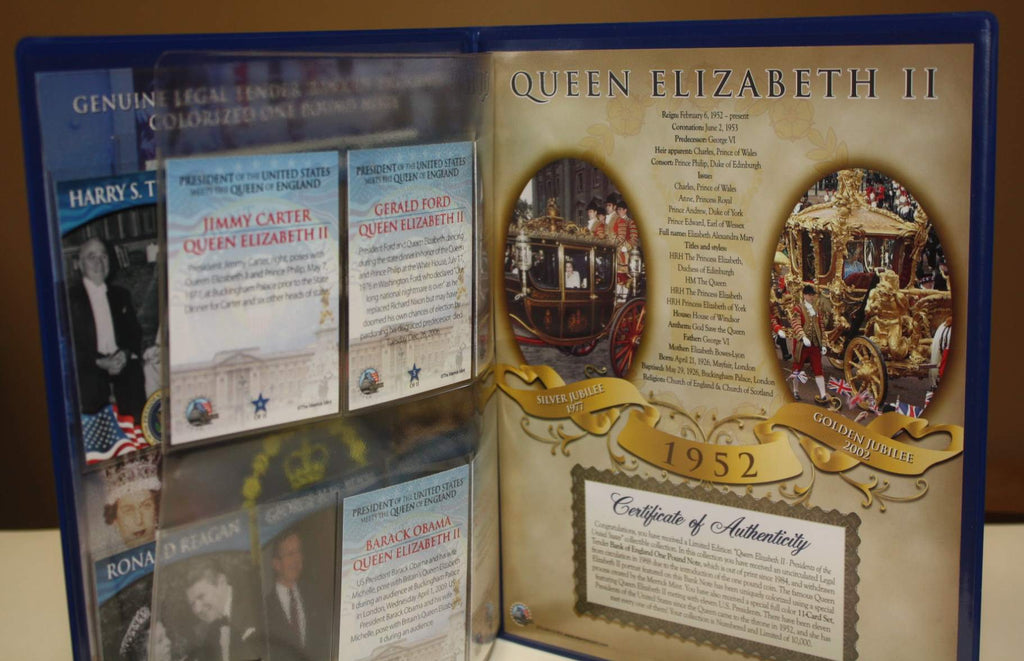 GENUINE LEGAL TENDER
COLORIZED ONE POUND NOTE
HARRY S. T
PRESIDENT OF THE UNITED STATES
MEETS THE QUEEN OF ENGLAND
JIMMY CARTER
QUEEN ELIZABETH II
President Jimmy Carter, right, poses with
Queen Elizabeth II and Prince Philip, May 7,
1977, at Buckingham Palace prior to the State
Dinner for Carter and six other heads of state.
OF 11
PRESIDENT OF THE UNITED STATES
MEETS THE QUEEN OF ENGLAND
GERALD FORD
QUEEN ELIZABETH II
President Ford and Queen Elizabeth dancing
during the state dinner in honor of the Queen
and Prince Philip at the White House, July 17,
1976 in Washington. Ford, who declared "Our
long national nightmare is over" as he
replaced Richard Nixon but may have
doomed his own chances of election by
pardoning his disgraced predecessor, died
Tuesday, Dec. 26, 2006.
OF 11
RONALD REAGAN
GEORGE
PRESIDENT OF THE UNITED STATES
MEETS THE QUEEN OF ENGLAND
BARACK OBAMA
QUEEN ELIZABETH II
US President Barack Obama and his wife
Michelle, pose with Britain's Queen Elizabeth
II during an audience at Buckingham Palace
in London, Wednesday April 1, 2009. US
President Barack Obama and his wife
Michelle, pose with Britain's Queen Elizabeth
II during an audience
QUEEN ELIZABETH II
Reign: February 6, 1952 – present
Coronation: June 2, 1953
Predecessor: George VI
Heir apparent: Charles, Prince of Wales
Consort: Prince Philip, Duke of Edinburgh
Issue:
Charles, Prince of Wales
Anne, Princess Royal
Prince Andrew, Duke of York
Prince Edward, Earl of Wessex
Full name: Elizabeth Alexandra Mary
Titles and styles:
HRH The Princess Elizabeth,
Duchess of Edinburgh
HM The Queen
HRH The Princess Elizabeth
HRH Princess Elizabeth of York
House: House of Windsor
Anthem: God Save the Queen
Father: George VI
Mother: Elizabeth Bowes-Lyon
Born: April 21, 1926, Mayfair, London
Baptised: May 29, 1926, Buckingham Palace, London
Religion: Church of England & Church of Scotland
SILVER JUBILEE
1977
1952
GOLDEN JUBILEE
2002
Certificate of Authenticity
Congratulations, you have received a Limited Edition "Queen Elizabeth II - Presidents of the
United States" collectible collection. In this collection you have received an uncirculated Legal
Tender Bank of England One Pound Note, which is out of print since 1984, and withdrawn
from circulation in 1988 due to the introduction of the one pound coin. The famous Queen
Elizabeth II portrait featured on this Bank Note has been uniquely colorized using a special
process created by the Merrick Mint. You have also received a special full color 11-Card Set,
featuring Queen Elizabeth II meeting with eleven U.S. Presidents. There have been eleven
Presidents of the United States since the Queen came to the throne in 1952, and she has
met every one of them! Your collection is Numbered and Limited of 10,000.